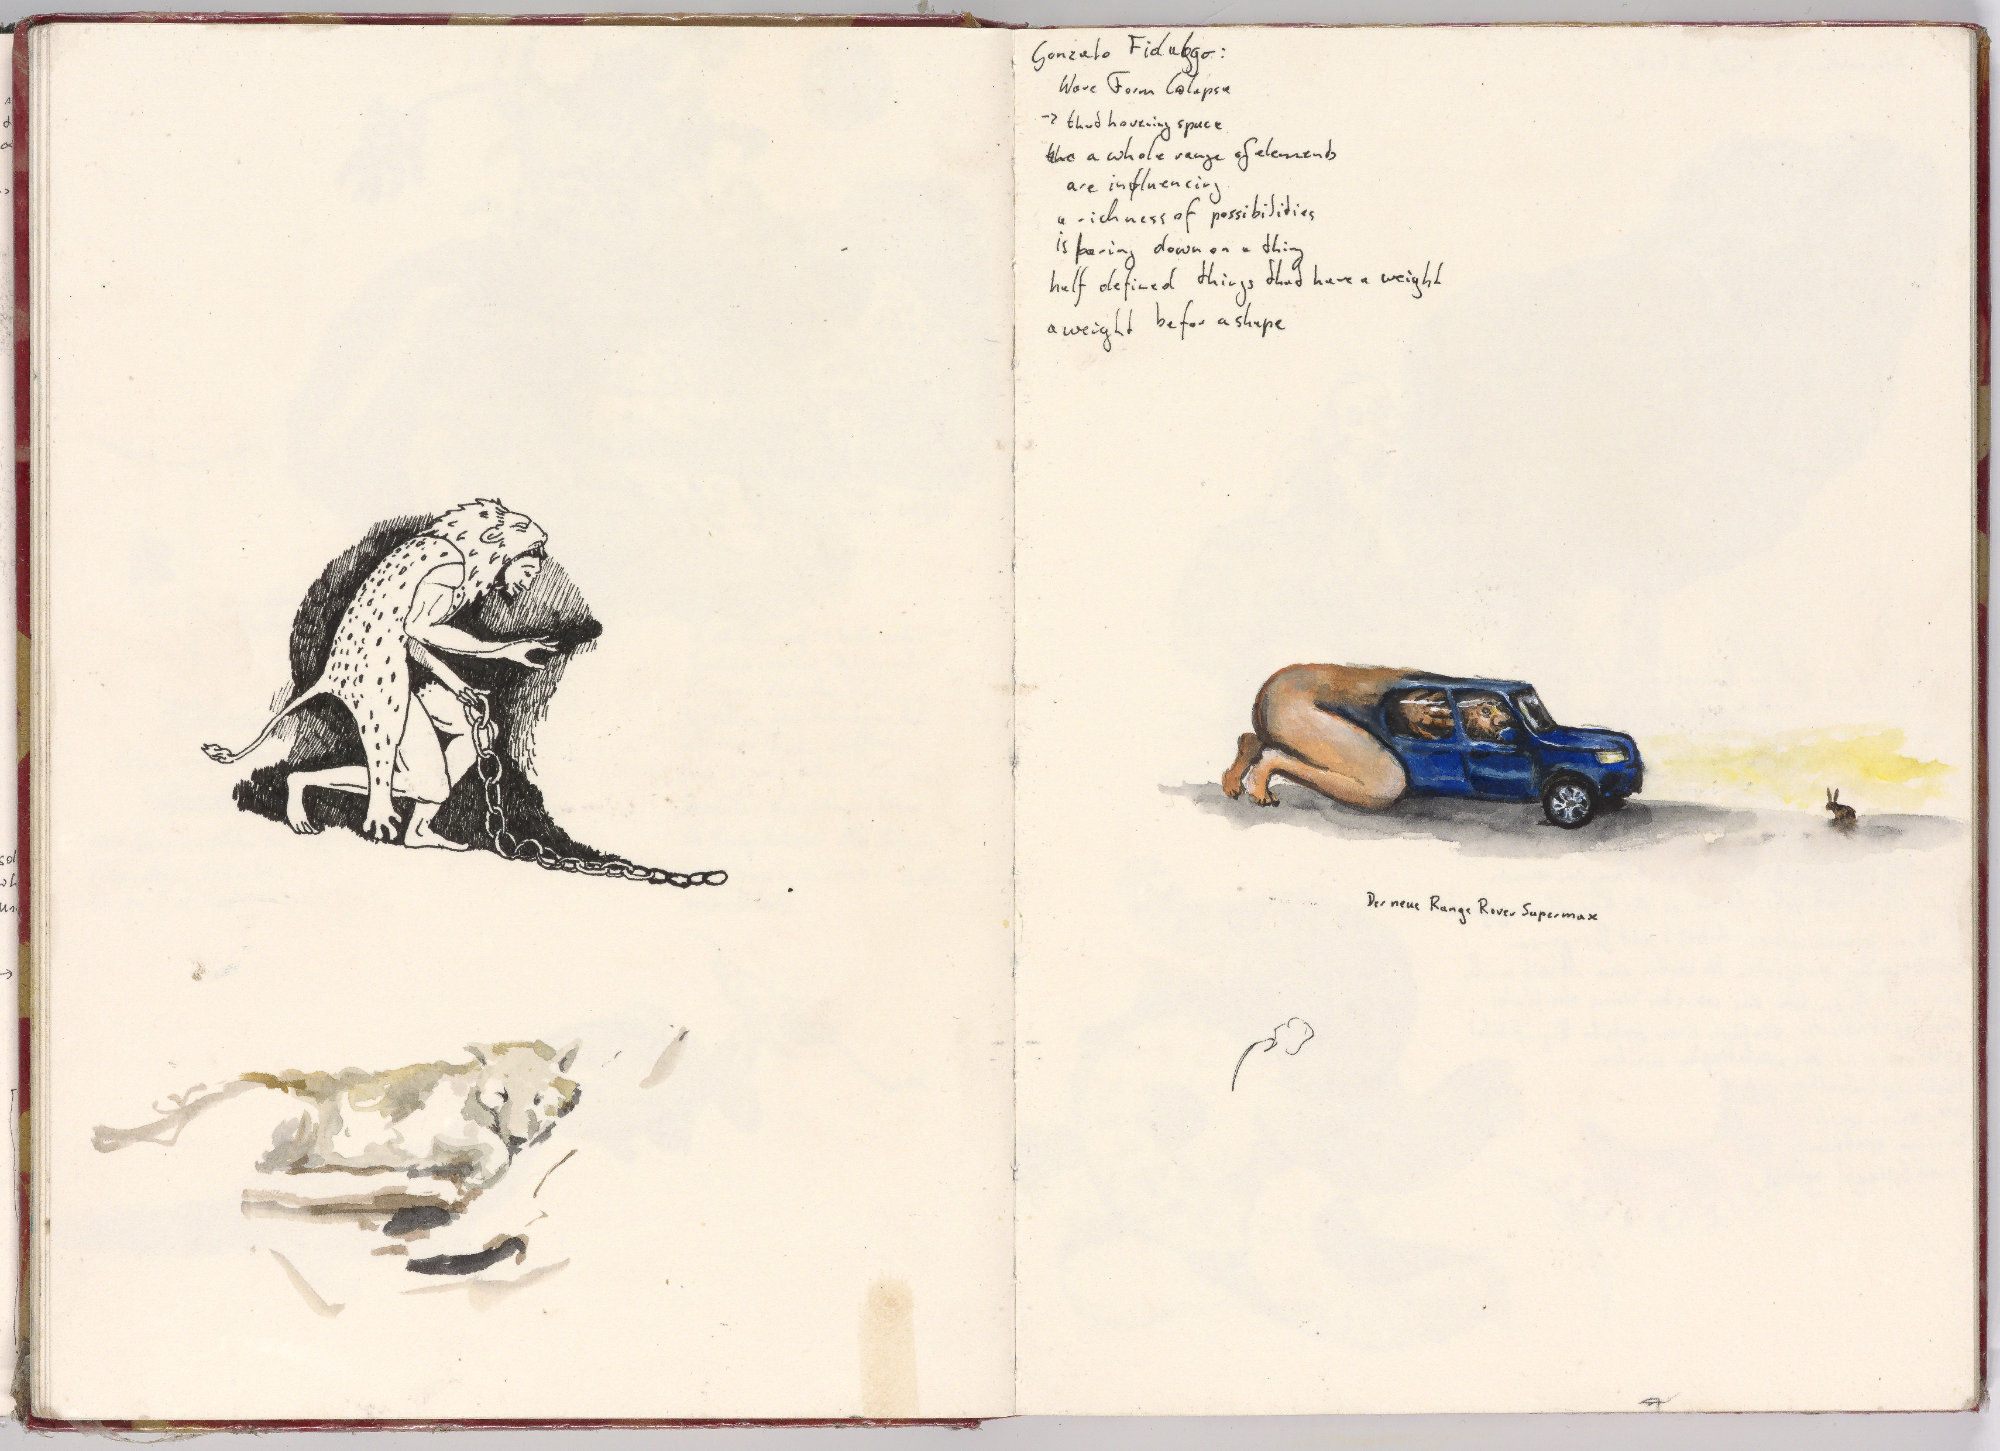 Gonzalo Fidalgo:
Wave Form Colapse
-> thad hovering space
a whole range of elements
are influencing
a richness of possibilities
is boring down on a thing
half defined things thad have a weight
a weight befor a shape
Der neue Range Rover Supermax